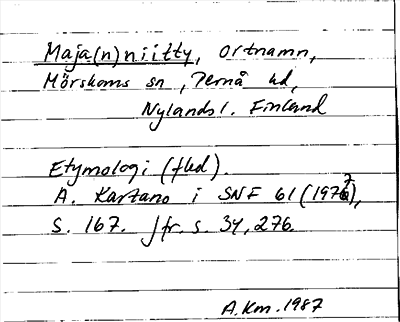 Maja(n)niitty, ortnamn,
Mörskoms sn, Pernå hd,
Nylands l. Finland
Etymologi (fhd).
A. Kartano i SNF 61 (1977),
s. 167. Jfr. s. 34, 276.
A.Km. 1987